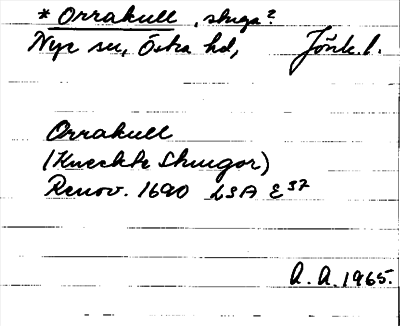 * Orrakull, stuga?
Nye sn, Östra hd, Jönk. l.
Orrakull
(Kneckte Stugor)
Renov. 1690 LSA E 37
A. A. 1965.